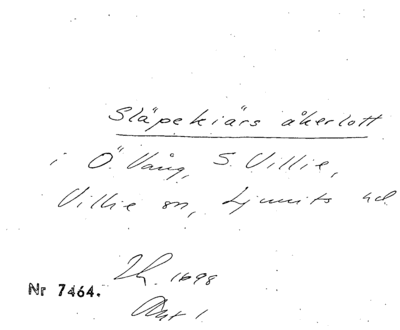 Släpekiärs åkerlott
i Ö. Vång, S. Villie,
Villie sn, Ljunits hd
1698
Nr 7464.
Akt 1